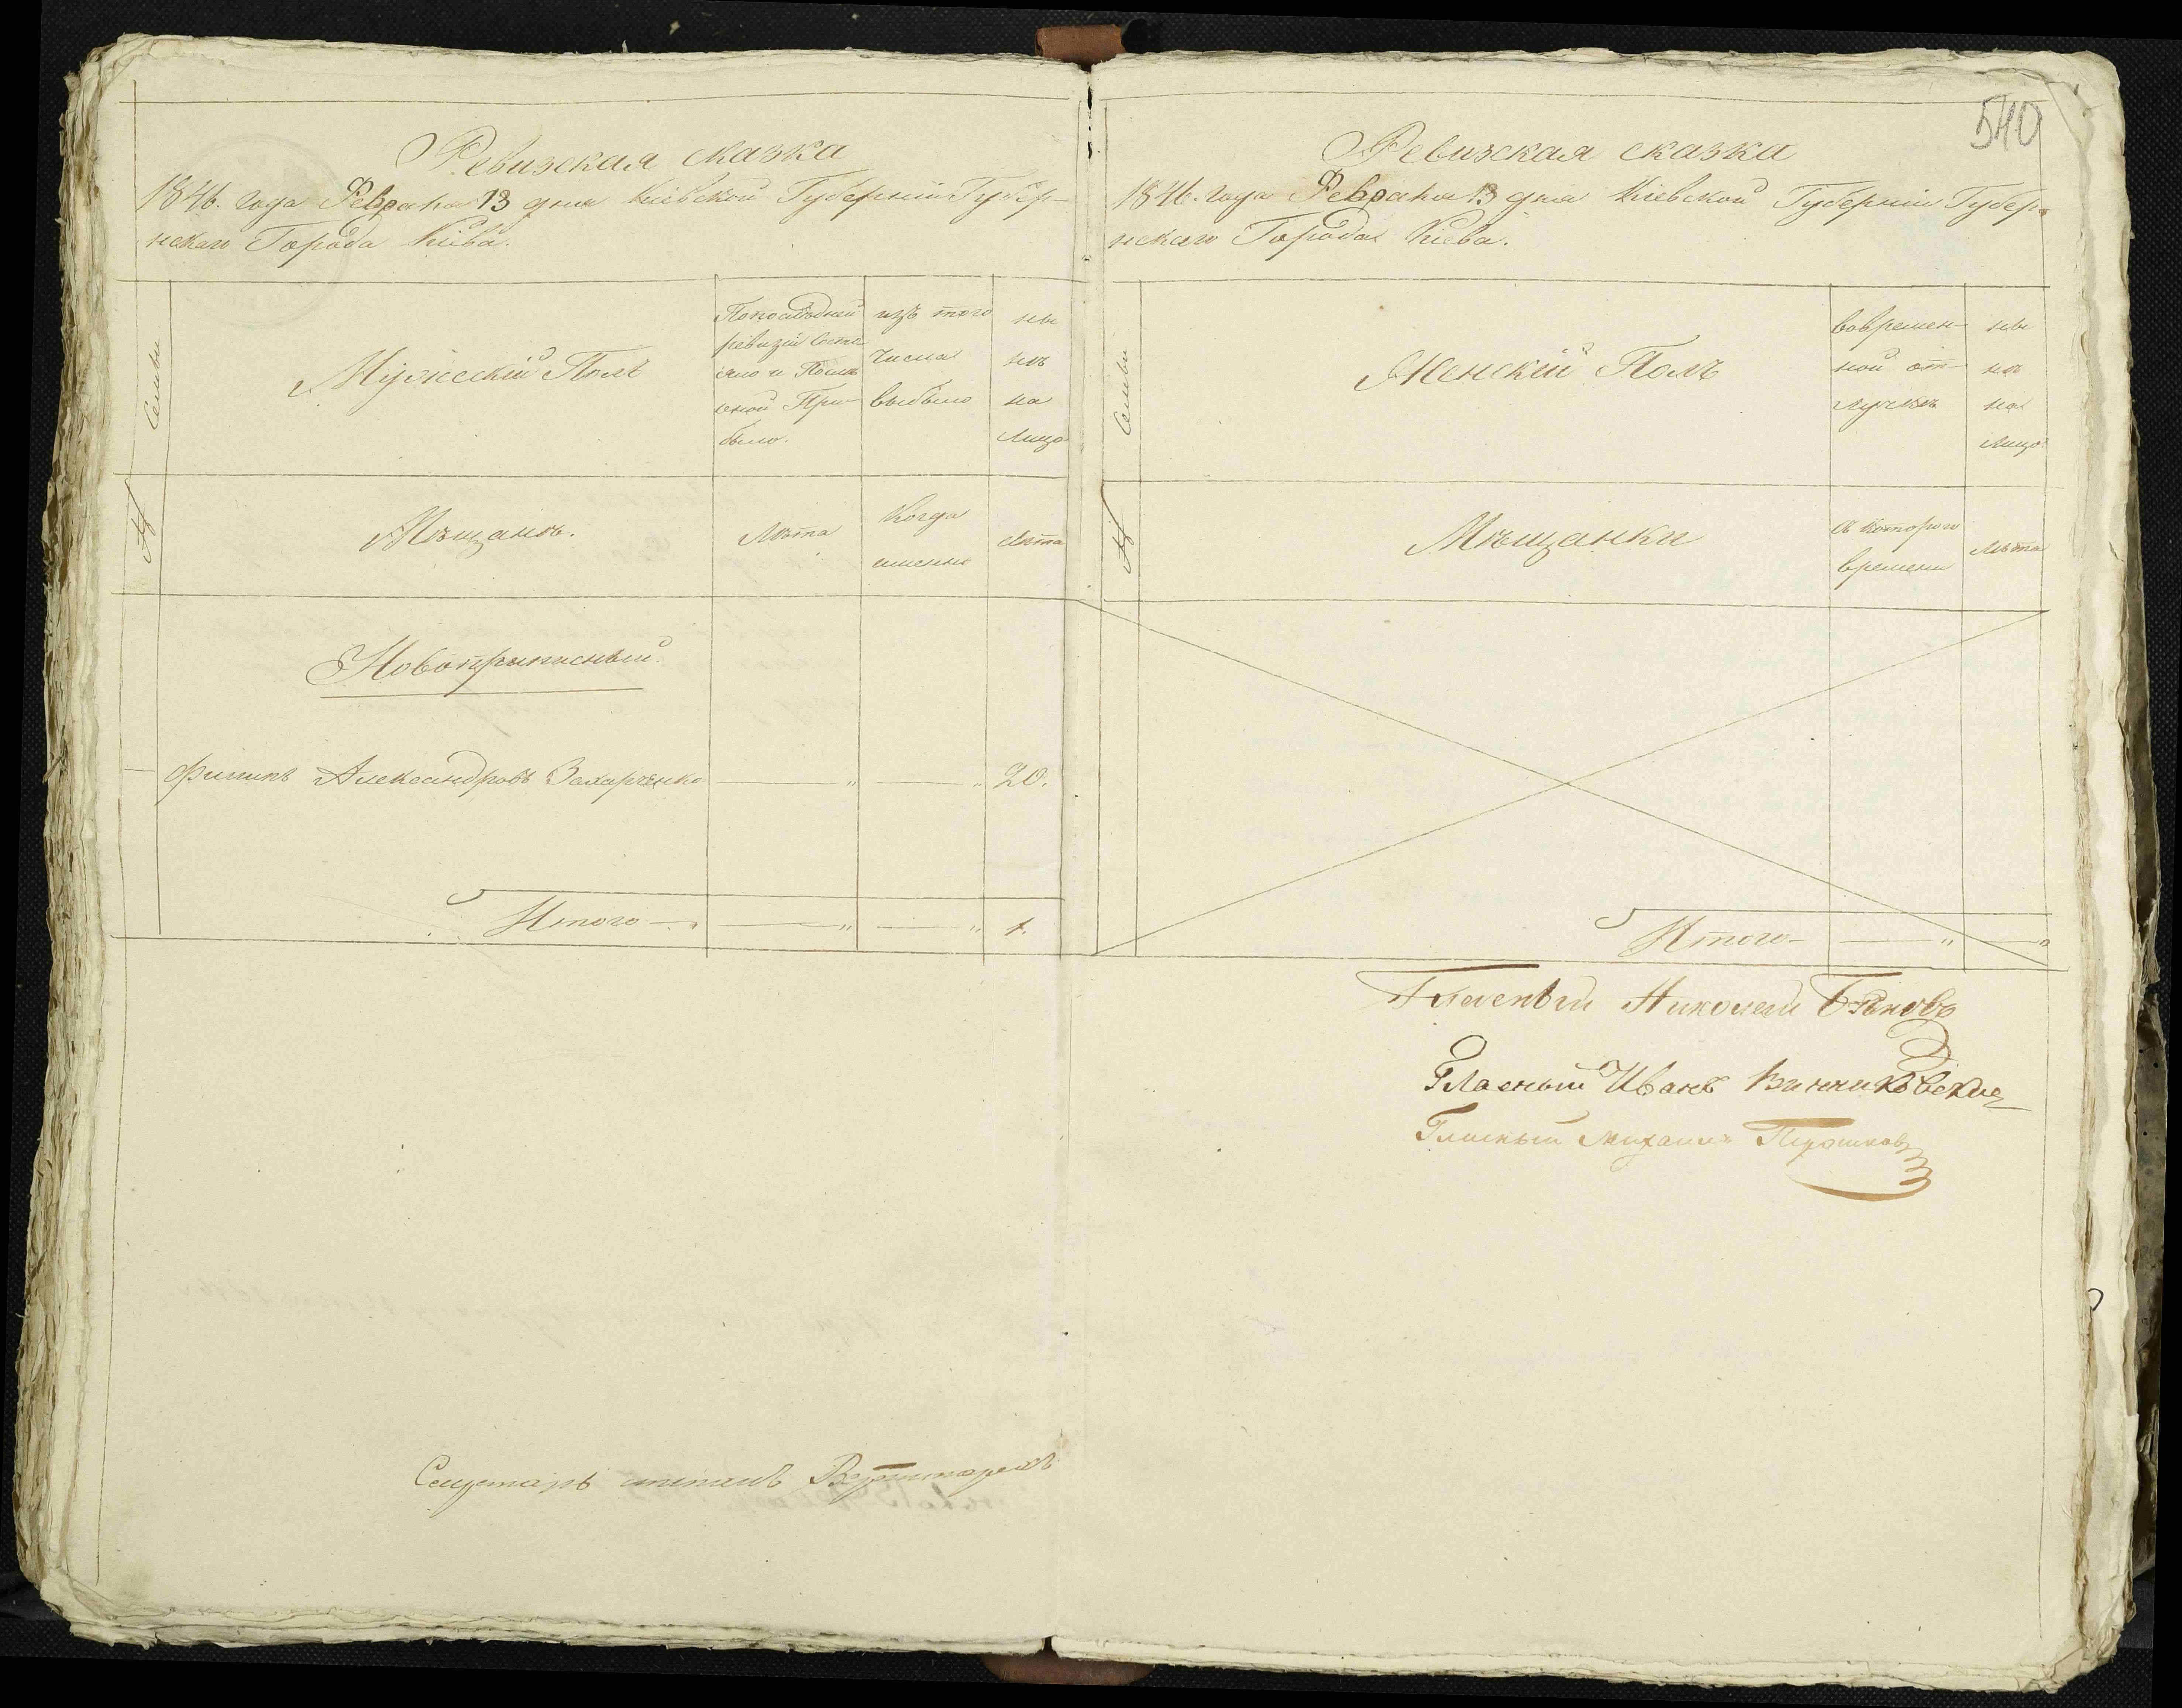 Ревизская сказка
1846. года Февраля 13 дня Кіевской Губерніи Губер-
нскаго Города Кіева.
№ Семьи
Мужескій Полъ
По последней
ревизіи состо
яло и После
оной При-
было.
изъ того
числа
выбыло
ны
нѣ
на
Лицо
Мѣщанъ.
Лѣта
Когда
именно
Лѣта
Новоприписный.
Филипъ Александровъ Захарченко — " — " 20.
Итого — " — " 1.
Секретарь
540
Ревизская сказка
1846. года Февраля 13 дня Кіевской Губерніи Губер-
нскаго Города Кіева.
№ Семьи
Женскій Полъ
вовремен-
ной от-
лучкѣ
ны
нѣ
на
Лицо
Мѣщанки
Съ котораго
времени
Лѣта
Итого — " — "
Гласный Николай
Гласный Иванъ Винниковскій
Гласный Михаилъ